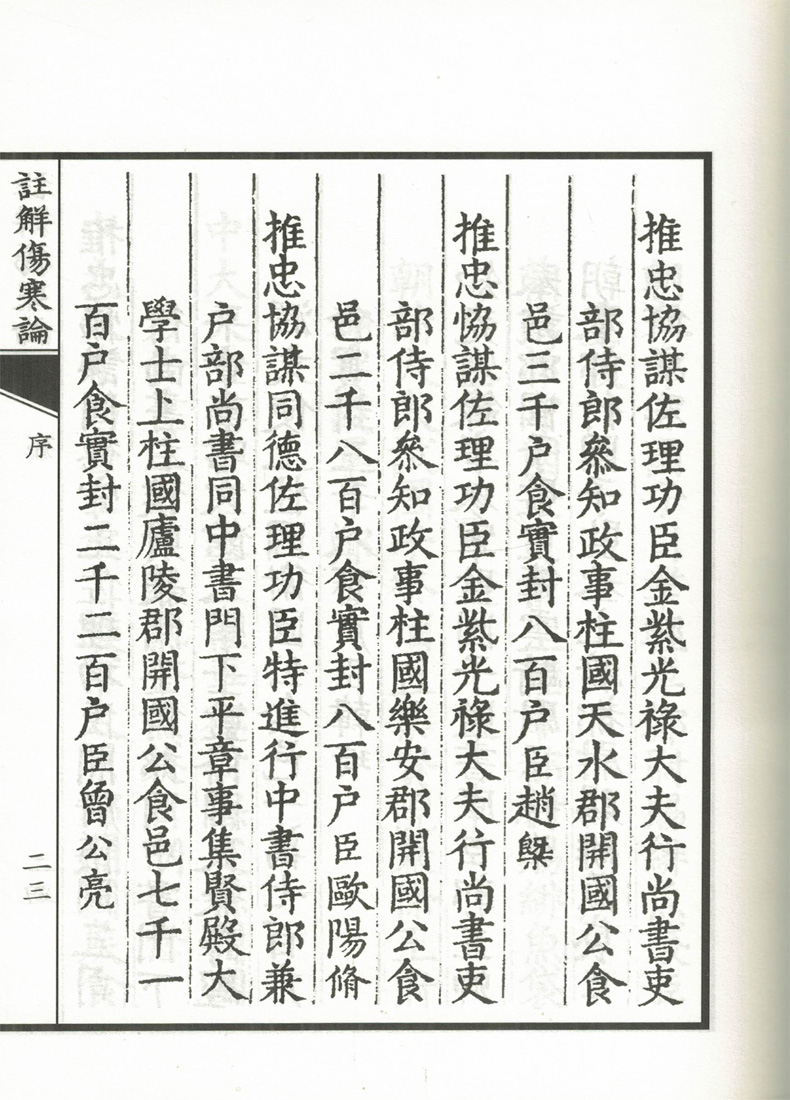 推忠協謀佐理功臣金紫光祿大夫行尚書吏
部侍郎叅知政事柱國天水郡開國公食
邑三千户食實封八百户臣趙槩
推忠恊謀佐理功臣金紫光祿大夫行尚書吏
部侍郎叅知政事柱國樂安郡開國公食
邑二千八百户食實封八百户臣歐陽脩
推忠協謀同德佐理功臣特進行中書侍郎兼
户部尚書同中書門下平章事集賢殿大
學士上柱國廬陵郡開國公食邑七千一
百户食實封二千二百户臣曾公亮
註解傷寒論
序
二三